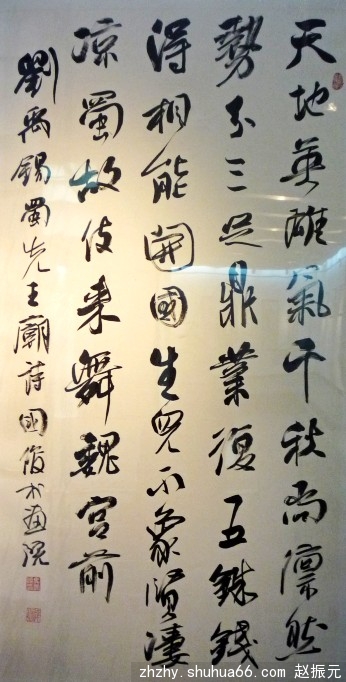 天地英雄氣千秋尚凛然
勢分三足鼎業復五銖錢
得相能開國生兒不象賢凄
凉蜀故伎来舞魏宫前
劉禹錫蜀先主廟詩國俊於畫院
zhzhy.shuhua66.com 赵振元